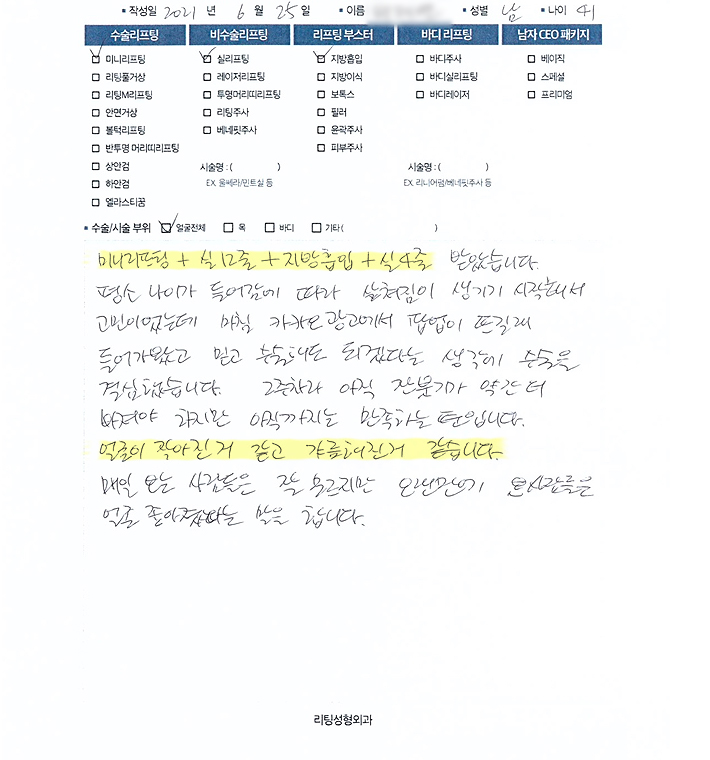 ▪ 작성일 2021 년 6 월 25 일 ▪ 이름 ▪ 성별 남 ▪ 나이 41
수술리프팅 비수술리프팅 리프팅 부스터 바디 리프팅 남자 CEO 패키지
☑ 미니리프팅 ☑ 실리프팅 ☑ 지방흡입 □ 바디주사 □ 베이직
□ 리팅풀거상 □ 레이저리프팅 □ 지방이식 □ 바디실리프팅 □ 스페셜
□ 리팅M리프팅 □ 투명머리띠리프팅 □ 보톡스 □ 바디레이저 □ 프리미엄
□ 안면거상 □ 리팅주사 □ 필러
□ 볼턱리프팅 □ 베네핏주사 □ 윤곽주사
□ 반투명 머리띠리프팅 □ 피부주사
□ 상안검 시술명 : ( ) 시술명 : ( )
□ 하안검 EX. 울쎄라/민트실 등 EX. 리니어펌/베네핏주사 등
□ 엘라스티꿈
▪ 수술/시술 부위 ☑ 얼굴전체 □ 목 □ 바디 □ 기타 ( )
미니리프팅 + 실12줄 + 지방흡입 + 실4줄 받았습니다.
평소 나이가 들어감에 따라 살쳐짐이 생기기 시작해서
고민이었는데 마침 카카오 광고에서 팝업이 뜨길래
들어가봤고 믿고 수술해도 되겠다는 생각에 수술을
결심했습니다. 2주차라 아직 잔붓기가 약간 더
빠져야 하지만 아직까지는 만족하는 편입니다.
얼굴이 작아진거 같고 갸름해진거 같습니다.
매일 보는 사람들은 잘 모르지만 오랜만에 본사람들은
얼굴 좋아졌다는 말을 합니다.
리팅성형외과